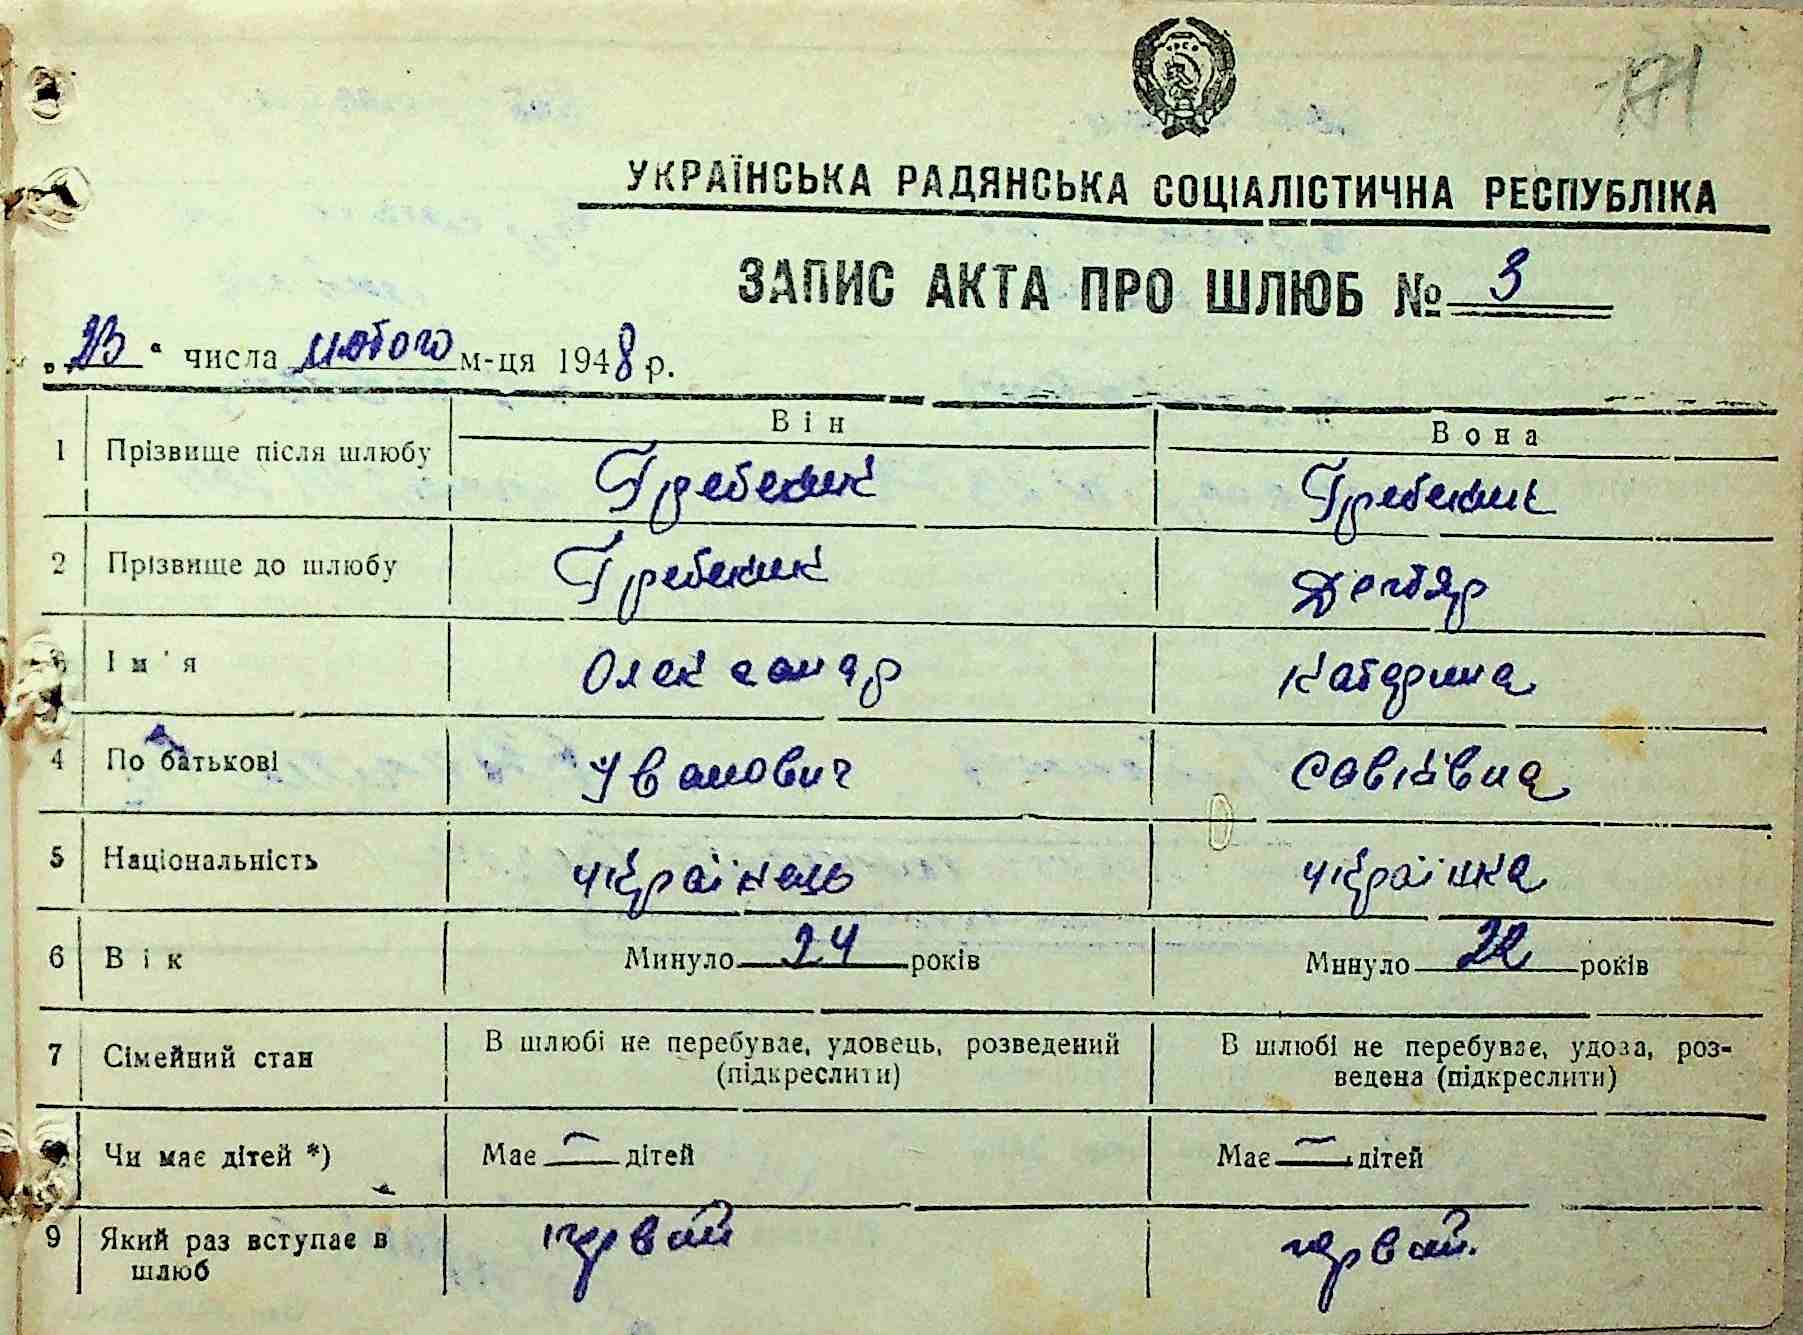 171
УКРАЇНСЬКА РАДЯНСЬКА СОЦІАЛІСТИЧНА РЕСПУБЛІКА
ЗАПИС АКТА ПРО ШЛЮБ № 3
„23“ числа лютого м-ця 1948 р.
Він Вона
1 Прізвище після шлюбу Гребеник Гребеник
2 Прізвище до шлюбу Гребеник Дегтяр
3 Ім'я Олександр Катерина
4 По батькові Иванович Савківна
5 Національність українець українка
6 Вік Минуло 24 років Минуло 22 років
7 Сімейний стан В шлюбі не перебуває, удовець, розведений (підкреслити) В шлюбі не перебуває, удова, роз-
ведена (підкреслити)
Чи має дітей *) Має — дітей Має — дітей
9 Який раз вступає в шлюб первый первый